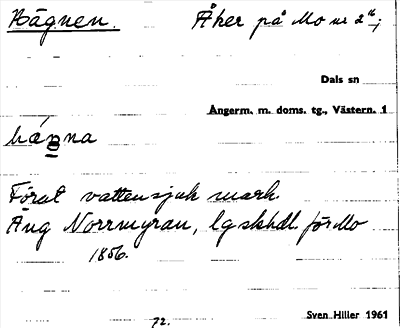 Hägnen. Åker på Mo nr 2 16;
Dals sn
Ångerm. m. doms. tg., Västern. 1
hæŋna
Förut vattensjuk mark.
Äng Norrmyran, lgskhdl. för Mo
1856.
72.
Sven Hiller 1961